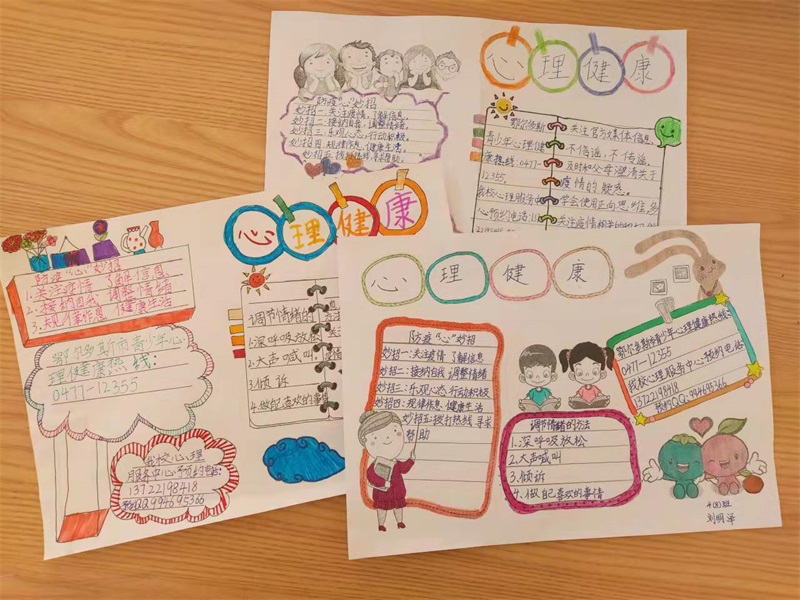 心理健康
防疫"心"妙招
妙招一:关注疫情,了解信息,
妙招二:接纳自我,调整情绪,
妙招三:乐观心态,行动积极,
妙招四:规律作息,健康生活,
妙招五:拨打热线,寻求帮助。
鄂尔多斯
青少年心理健
康热线:0477-
12355.
我校心理服务中
心预约电话:1
关注官方媒体信息,
不信谣,不传谣,
及时和父母澄清关于
疫情的疑惑。
学会使用正向思维,多
关注疫情相关的
心理健康
防疫"心"妙招
1.关注疫情 了解信息
2.接纳自我 调整情绪
3.规律作息 健康生活
鄂尔多斯市青少年心
理健康热线:
0477-12355
我校心理
服务中心预约电话:
13722198418
预约QQ:994695366
调节情绪的
1.深呼吸放松
2.大声喊叫
3.倾诉
4.做自己喜欢的事
心理健康
防疫"心"妙招
妙招一:关注疫情 了解信息
妙招二:接纳自我 调整情绪
妙招三:乐观心态 行动积极
妙招四:规律作息 健康生活
妙招五:拨打热线 寻求
帮助
鄂尔多斯市青少年心理健康热线:
0477-12355
我校心理服务中心预约电话
13722198418
预约QQ:994695366
调节情绪的方法
1.深呼吸放松
2.大声喊叫
3.倾诉
4.做自己喜欢的事情
4(8)班
刘明泽